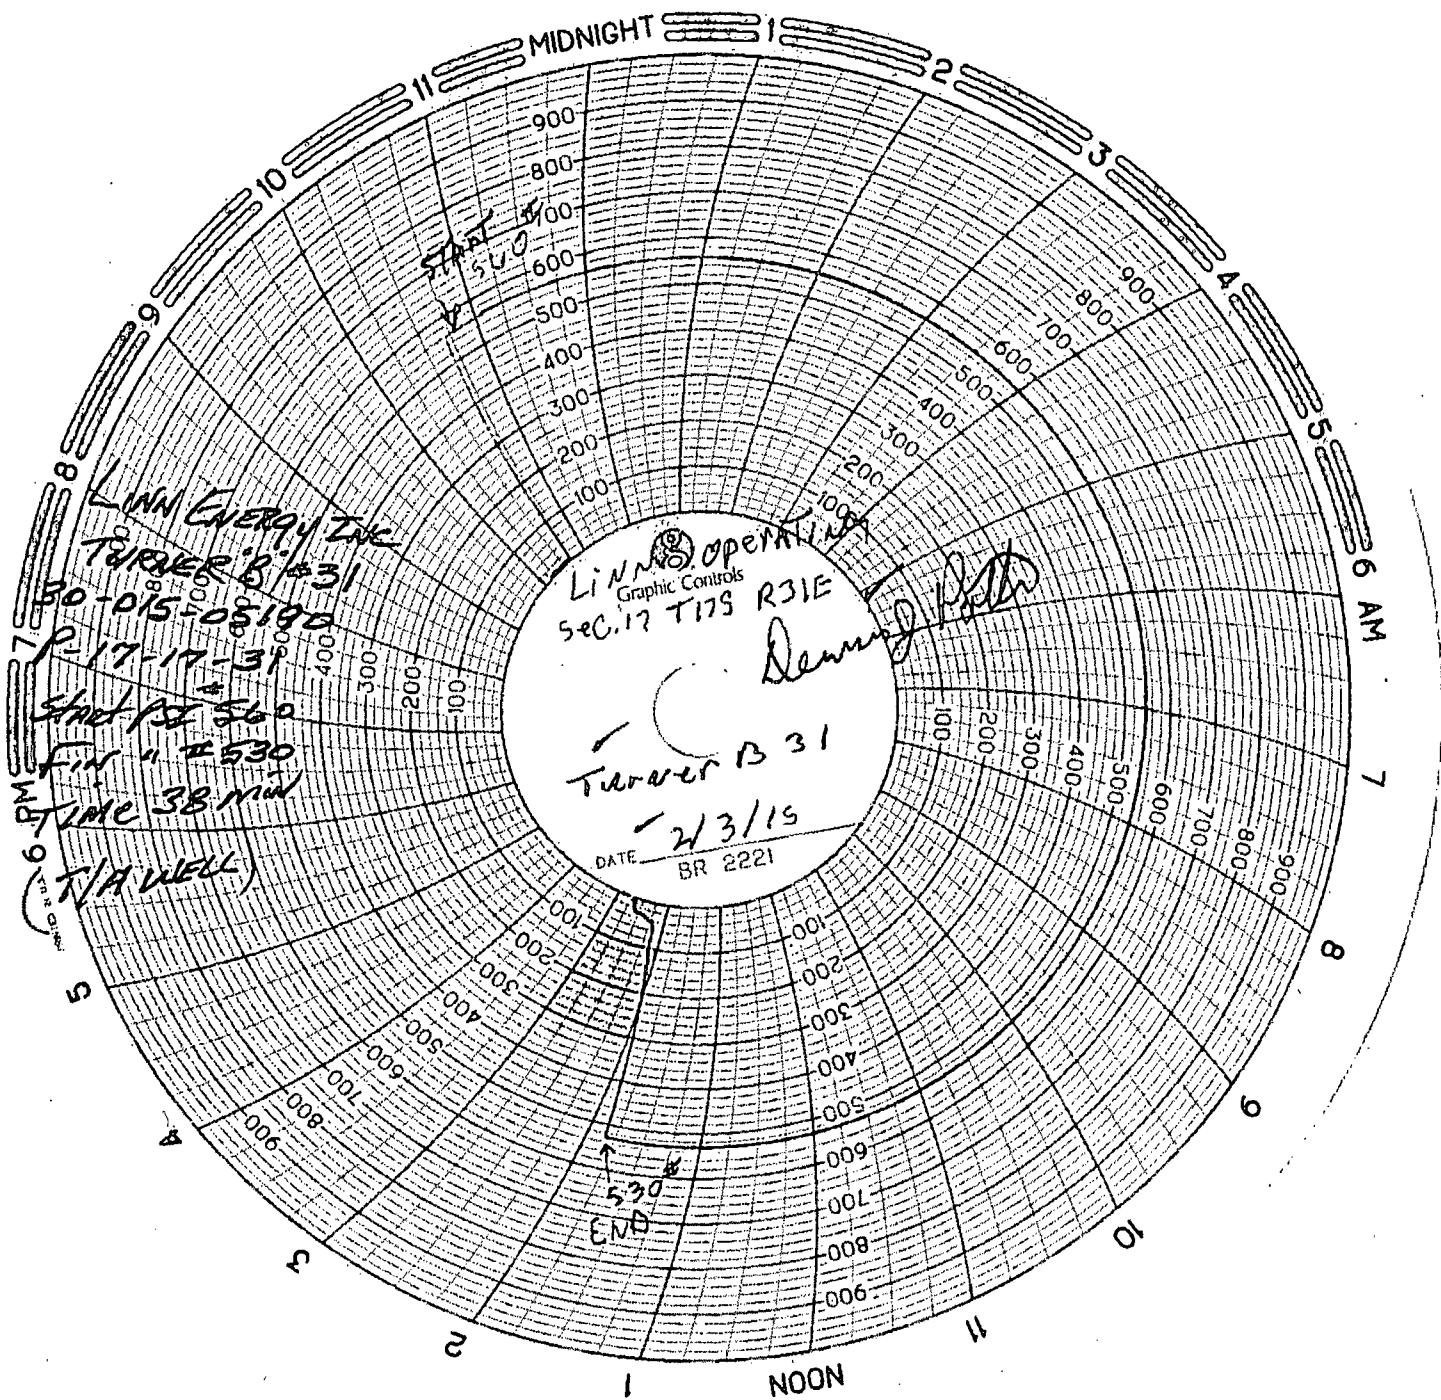 MIDNIGHT
1
2
3
4
5
6 AM
7
8
9
10
11
NOON
1
2
3
4
5
6 PM
7
8
9
10
11
900
800
700
600
500
400
300
200
100
900
800
700
600
500
400
300
200
100
100
200
300
400
500
600
700
800
900
100
200
300
400
500
600
700
800
900
100
200
300
400
500
600
700
800
900
400
300
200
100
START #
560
LINN ENERGY INC
TURNER "B" #31
30-015-05190
P-17-17-31
START PSI #560
FIN " #530
TIME 38 MIN
(T/A WELL)
LINN operating
Graphic Controls
Sec.17 T17S R31E
Turner B 31
2/3/15
DATE
BR 2221
530 #
END